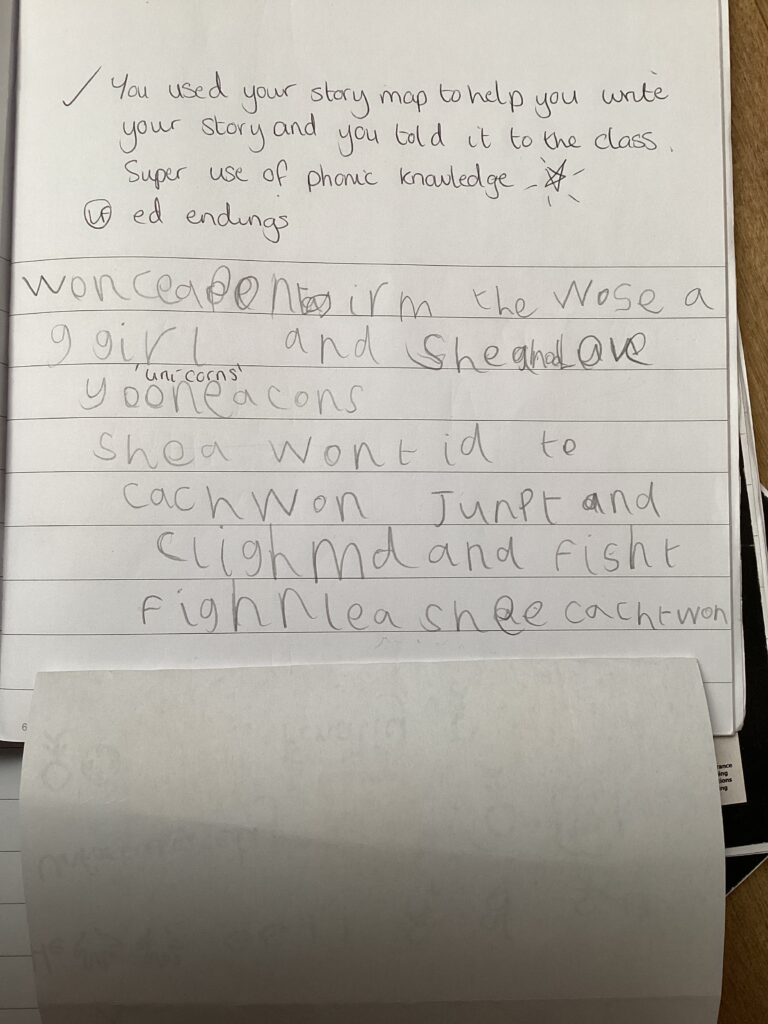 ✓ You used your story map to help you write
your story and you told it to the class.
Super use of phonic knowledge
ed endings
wonceapont irm the wose a
g girl and She and Love
'unicorns'
yooneacons
shea wontid to
cachwon Junpt and
clighmd and fisht
fighnlea shee cachtwon
6